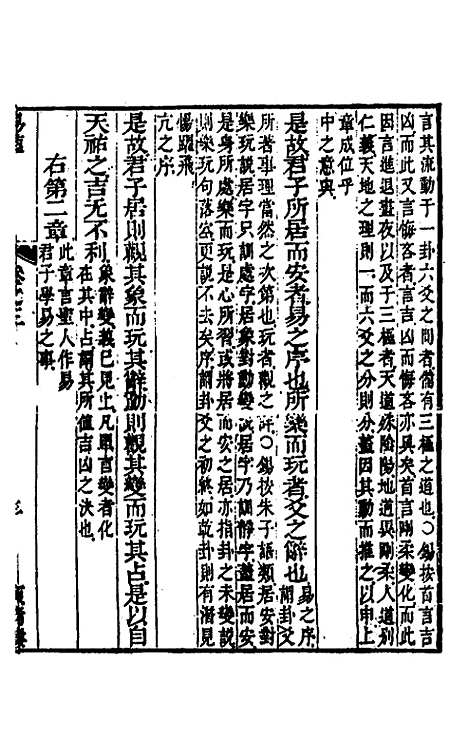 言其流動于一卦六爻之間者備有三極之道也〇錫按首言吉
凶而此又言悔吝者言吉凶而悔吝亦具矣首言剛柔變化而此
因言進退晝夜以及于三極者天道殊陰陽地道異剛柔人道別
仁義天地之理則一而六爻之分則分蓋因其動而推之以申上
章成位乎
中之意與
是故君子所居而安者易之序也所樂而玩者爻之辭也易之序
謂卦爻
所著事理當然之次第也玩者觀之詳〇錫按朱子語類居安對
樂玩說居字只訓處字居象對動變說居字乃訓靜字蓋居而安
是身所處樂而玩是心所習或將居而安之居亦指卦之未變說
則樂玩句落公更說不去矣序謂卦之初終如乾卦則有潛見
惕躍飛
亢之序
是故君子居則觀其象而玩其辭動則觀其變而玩其占是以自
天祐之吉无不利象辭變義已見上凡單言變者化
在其中占謂其所值吉凶之決也
右第二章此章言聖人作易
君子學易之事